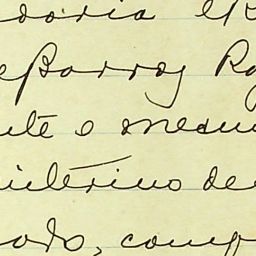 doria ex
eBarros Ro
nte o mesm
interino de
ods, comp